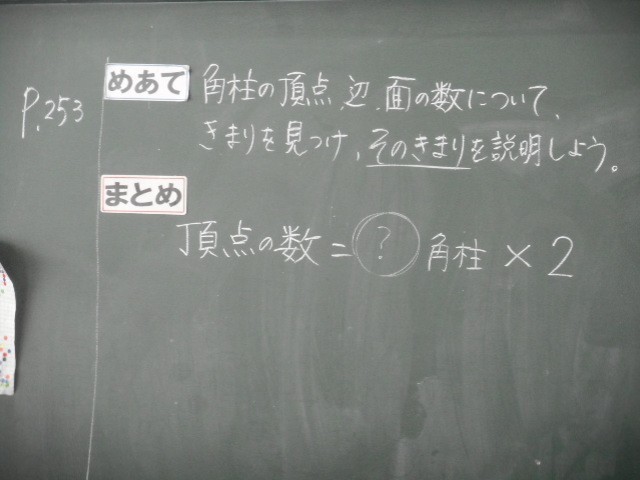 P.253
めあて 角柱の頂点、辺、面の数について、
きまりを見つけ、そのきまりを説明しよう。
まとめ
頂点の数=?角柱×2